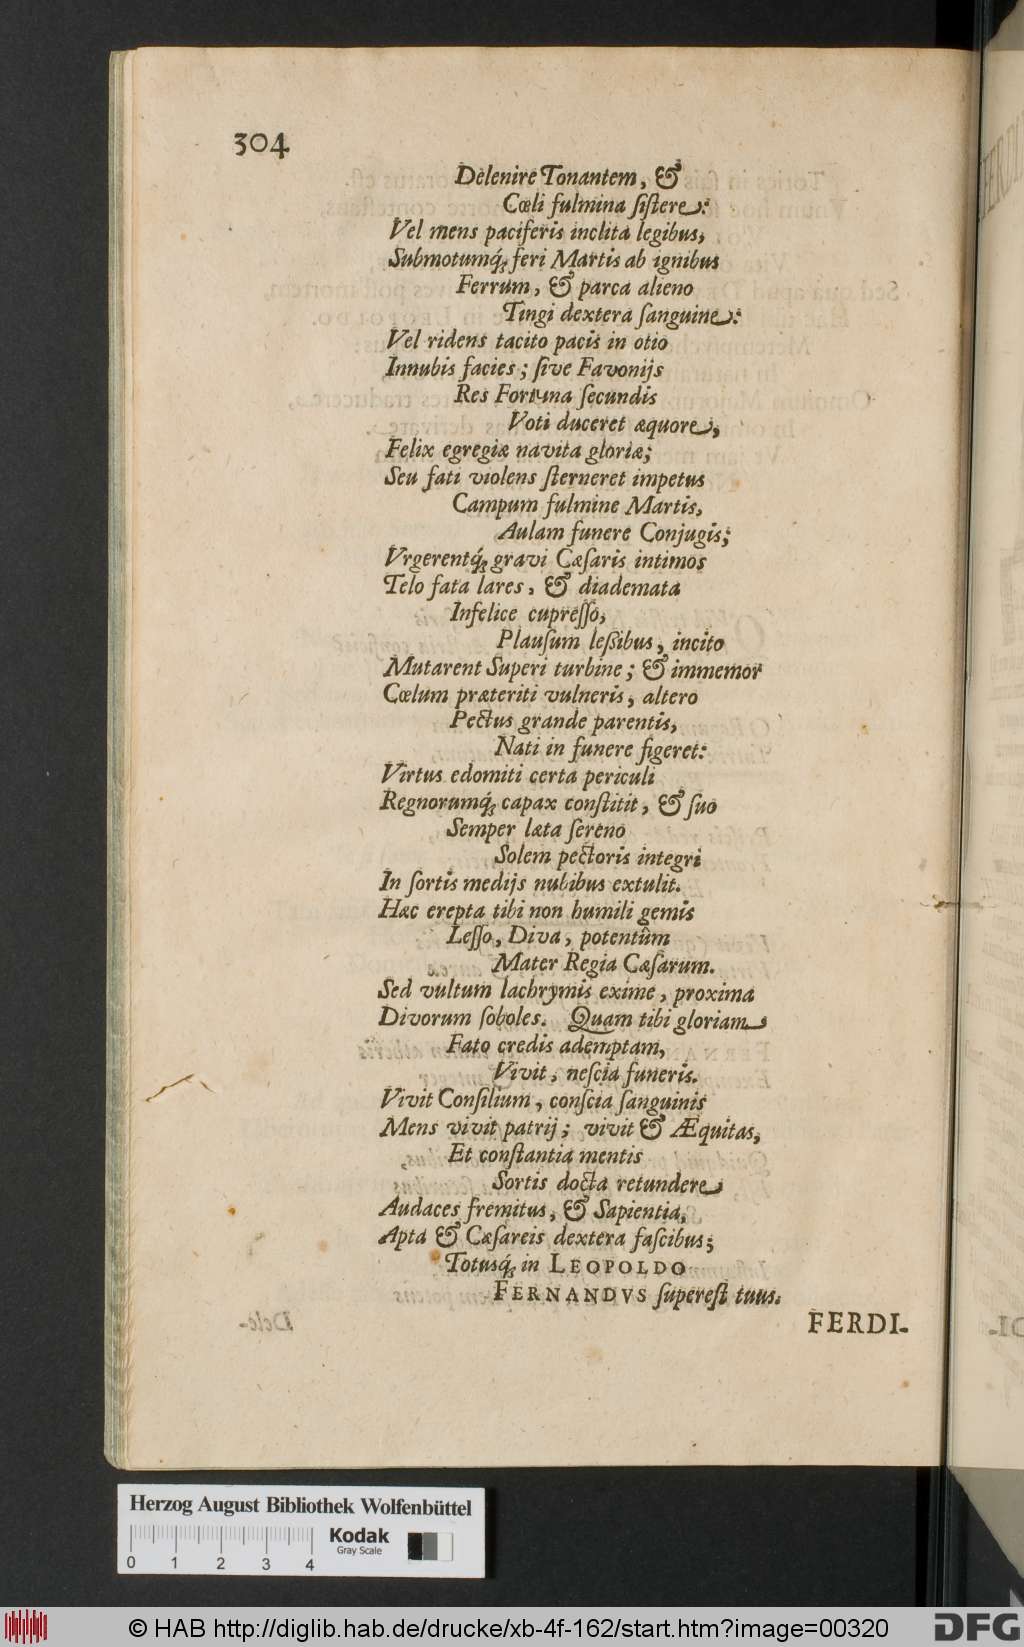 304
Delenire Tonantem, &
Cœli fulmina ſiſtere:
Vel mens paciferis inclita legibus,
Submotumq́; feri Martis ab ignibus
Ferrum, & parca alieno
Tingi dextera ſanguine:
Vel ridens tacito pacis in otio
Innubis facies; ſive Favonijs
Res Fortuna ſecundis
Voti duceret æquore,
Felix egregiæ navita gloriæ;
Seu fati violens ſterneret impetus
Campum fulmine Martis,
Aulam funere Conjugis;
Vrgerentq́; gravi Cæſaris intimos
Telo fata lares, & diademata
Infelice cupreſſo,
Plauſum leſsibus, incito
Mutarent Superi turbine; & immemor
Cœlum præteriti vulneris, altero
Pectus grande parentis,
Nati in funere figeret:
Virtus edomiti certa periculi
Regnorumq́; capax conſtitit, & ſuo
Semper læta ſereno
Solem pectoris integri
In ſortis medijs nubibus extulit.
Hæc erepta tibi non humili gemis
Leſſo, Diva, potentûm
Mater Regia Cæſarum.
Sed vultum lachrymis exime, proxima
Divorum ſoboles. Quam tibi gloriam
Fato credis ademptam,
Vivit, neſcia funeris.
Vivit Conſilium, conſcia ſanguinis
Mens vivit patrij; vivit & Æquitas,
Et conſtantia mentis
Sortis docta retundere
Audaces fremitus, & Sapientia,
Apta & Cæſareis dextera faſcibus;
Totusq́; in LEOPOLDO
FERNANDVS ſupereſt tuus.
FERDI-
Herzog August Bibliothek Wolfenbüttel
0 1 2 3 4
Kodak
Gray Scale
© HAB http://diglib.hab.de/drucke/xb-4f-162/start.htm?image=00320
DFG